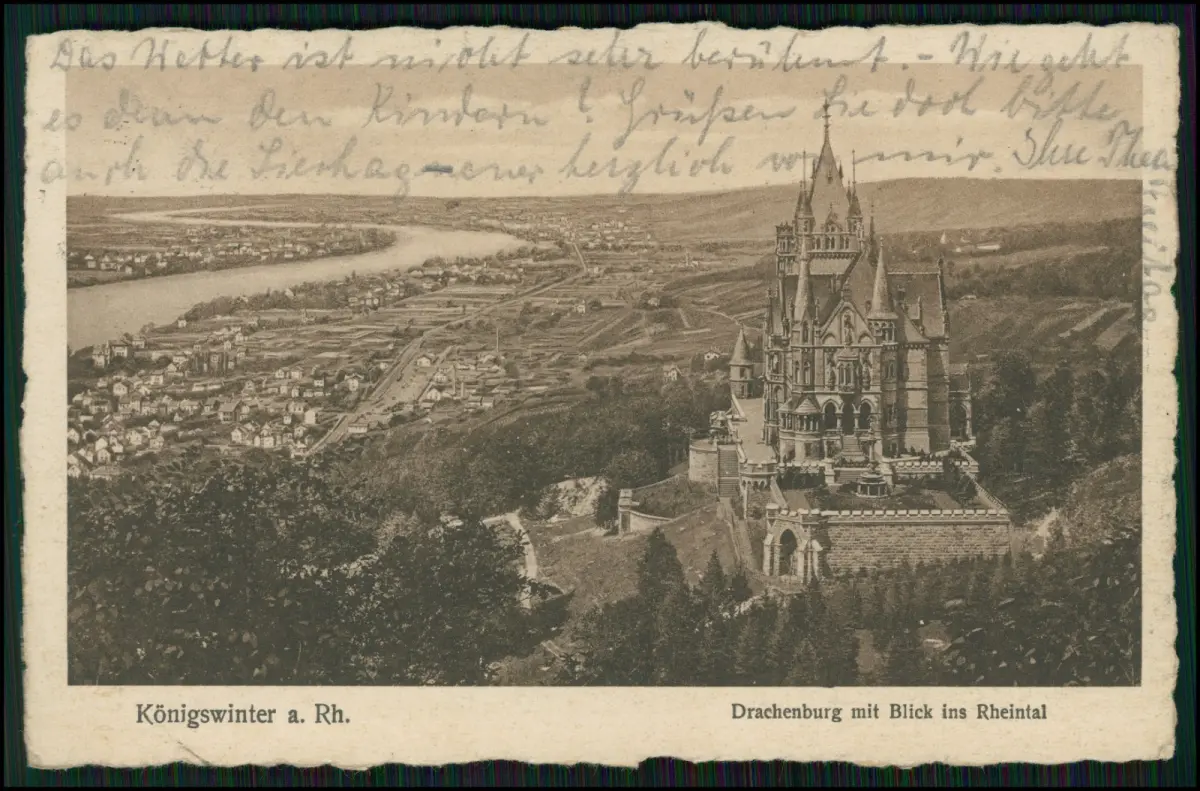 Das Wetter ist nicht sehr berühmt. - Wie geht
es denn den Kindern? Grüßen Sie doch bitte
auch die Bierhagener herzlich von mir. Ihre Thea
Königswinter a. Rh.
Drachenburg mit Blick ins Rheintal